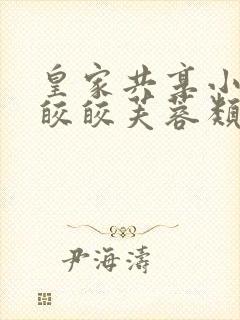 皇家共享小
皎皎芙蓉类
尹海濤